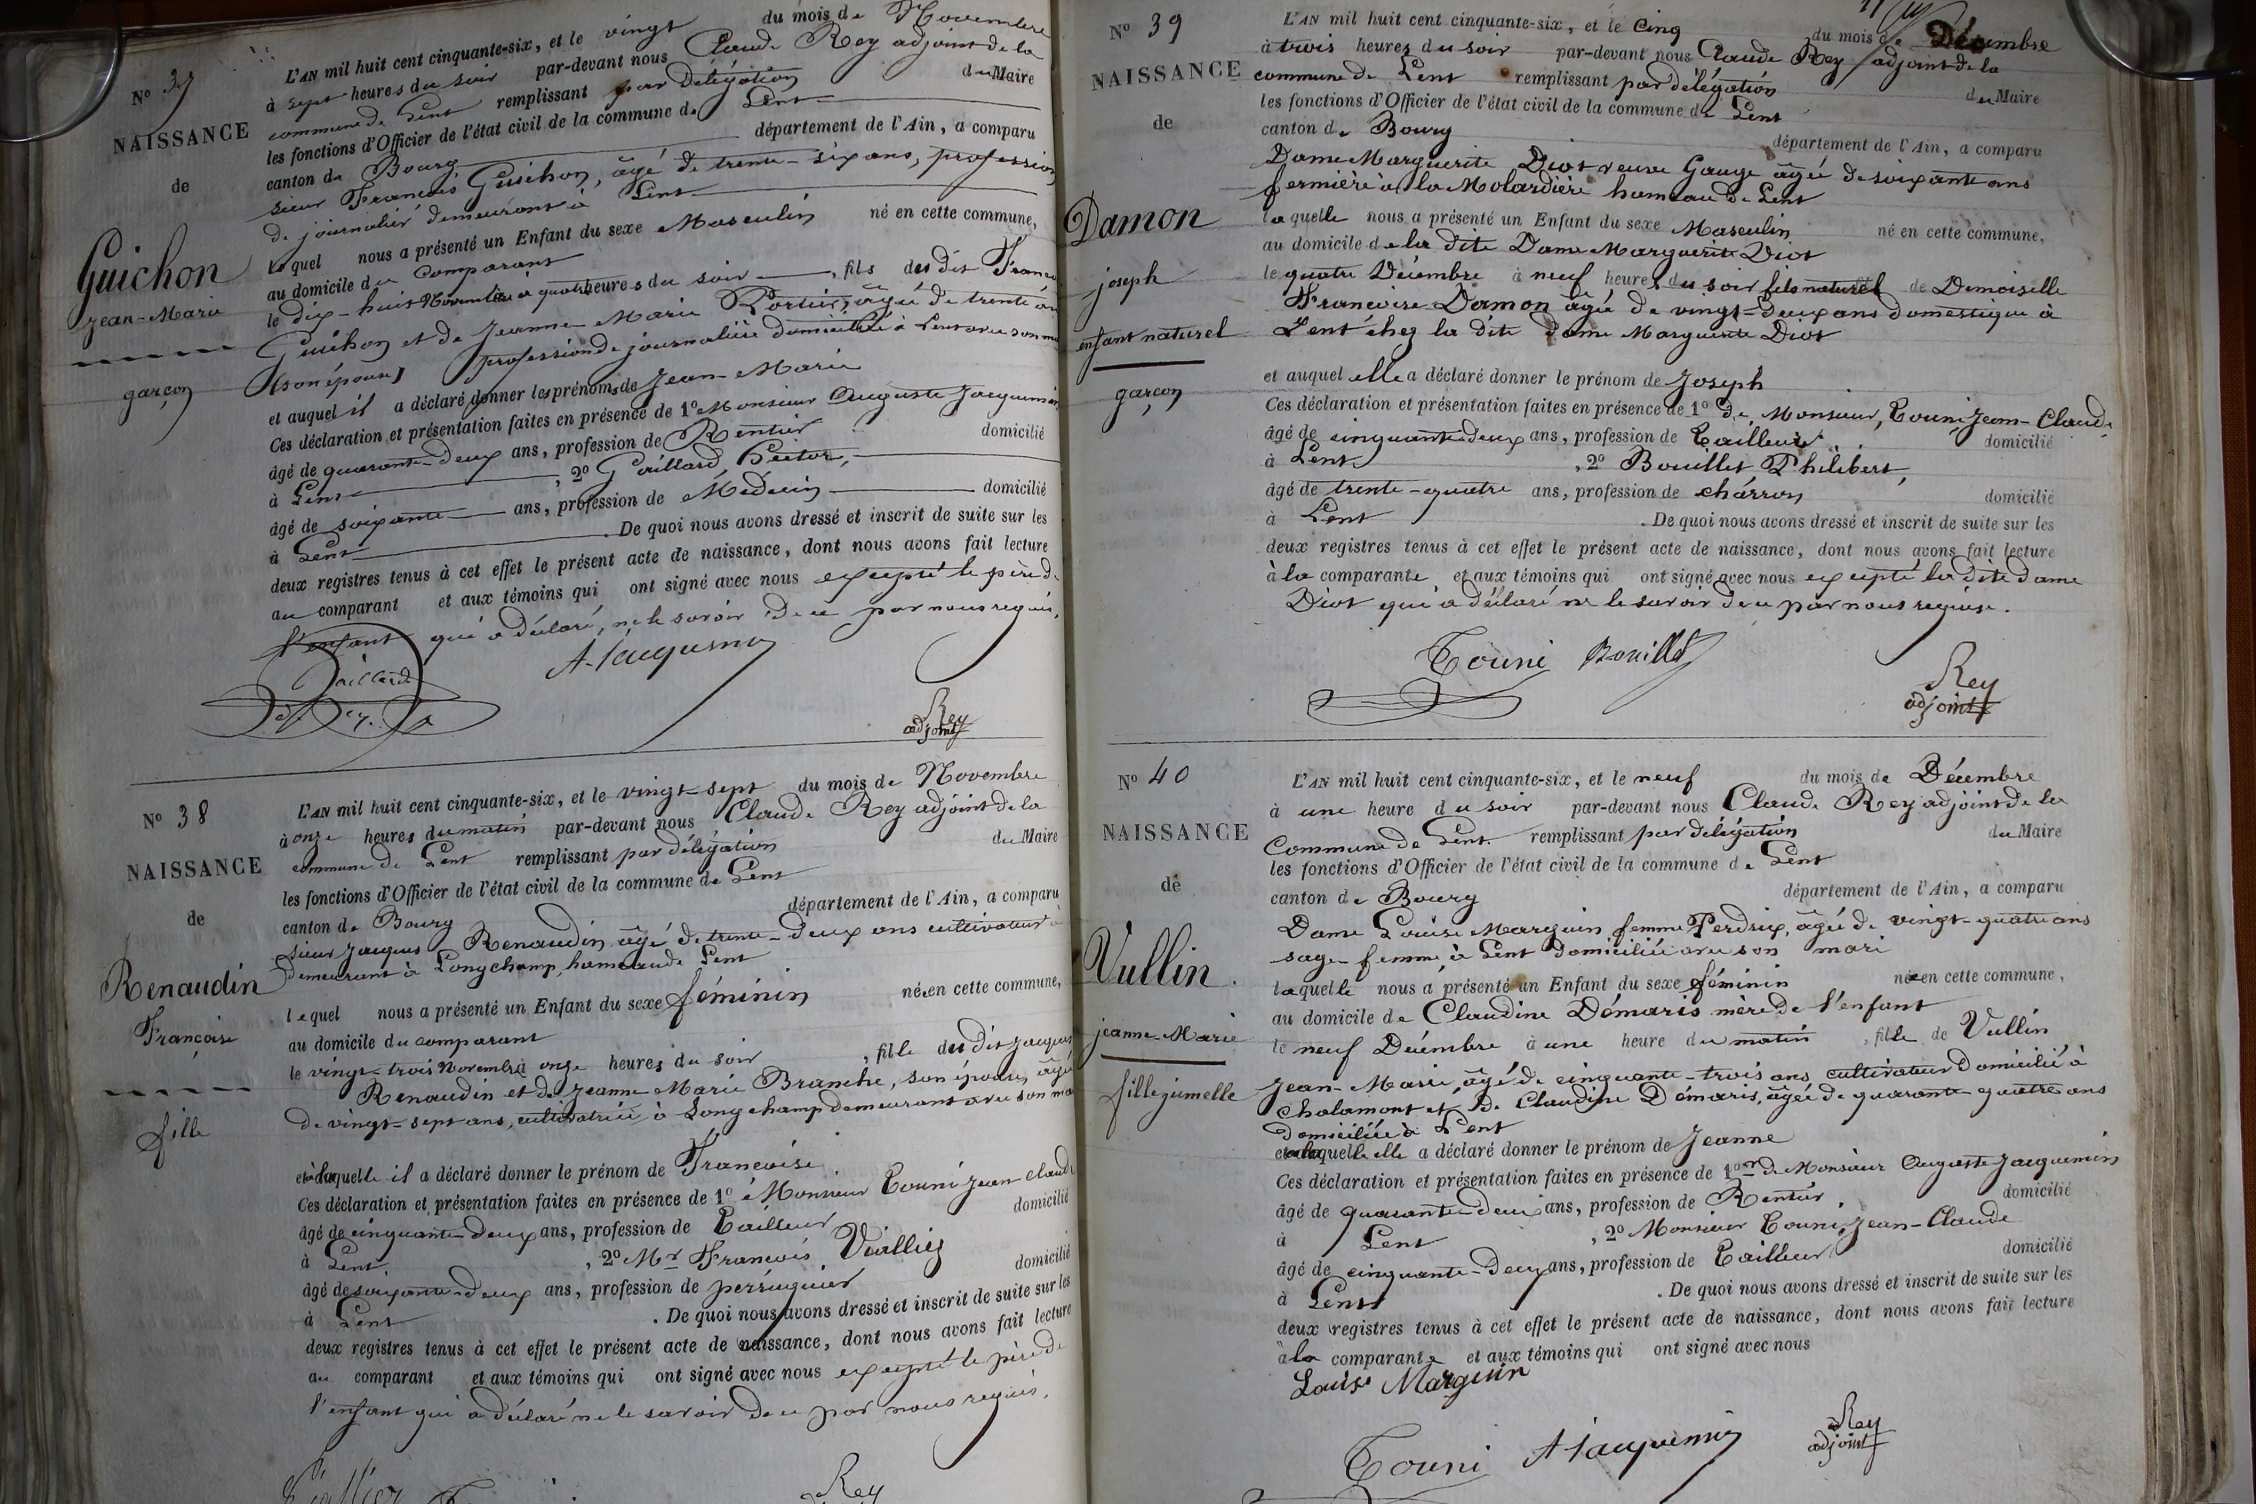 No 37
NAISSANCE
de
Guichon
Jean-Marie
garçon
L'AN mil huit cent cinquante-six, et le vingt du mois de Novembre
à sept heures du soir par-devant nous Claude Rey adjoint de la
commune de Lent remplissant par Délégation du Maire
les fonctions d'Officier de l'état civil de la commune de Lent
canton de Bourg département de l'Ain, a comparu
sieur François Guichon, âgé de trente-six ans, profession
de journalier demeurant à Lent
lequel nous a présenté un Enfant du sexe Masculin né en cette commune,
au domicile du comparant
le dix-huit Novembre à quatre heures du soir, fils du dit Franco
Guichon et de Jeanne-Marie Portier, âgée de trente an
(son épouse) profession de journalière domiciliée à Lent avec son ma
et auquel il a déclaré donner les prénoms de Jean-Marie
Ces déclaration et présentation faites en présence de 1o Monsieur Auguste Jacquemin
âgé de quarante-deux ans, profession de Rentier domicilié
à Lent, 2o Gaillard, Hector,
âgé de soixante ans, profession de Médecin domicilié
à Lent. De quoi nous avons dressé et inscrit de suite sur les
deux registres tenus à cet effet le présent acte de naissance, dont nous avons fait lecture
au comparant et aux témoins qui ont signé avec nous excepté le père de
l'enfant qui a déclaré, ne le savoir de ce par nous requis.
Gaillard
A. Jacquemin
Rey
adjoint
No 38
NAISSANCE
de
Renaudin
Françoise
fille
L'AN mil huit cent cinquante-six, et le vingt-sept du mois de Novembre
à onze heures du matin par-devant nous Claude Rey adjoint de la
commune de Lent remplissant par délégation du Maire
les fonctions d'Officier de l'état civil de la commune de Lent
canton de Bourg département de l'Ain, a comparu
sieur Jacques Renaudin âgé de trente-deux ans cultivateur à
demeurant à Longchamp, hameau de Lent
lequel nous a présenté un Enfant du sexe féminin née en cette commune,
au domicile du comparant
le vingt-trois Novembre à onze heures du soir, fille du dit Jacques
Renaudin et de Jeanne Marie Branche, son épouse, âgée
de vingt-sept ans, cultivatrice à Longchamp demeurant avec son ma
et à laquelle il a déclaré donner le prénom de Francoise.
Ces déclaration et présentation faites en présence de 1o Monsieur Touni Jean claud
âgé de cinquante-deux ans, profession de Tailleur domicilié
à Lent, 2o Mr Francois Viallier
âgé de soixante-deux ans, profession de perruquier domicilié
à Lent. De quoi nous avons dressé et inscrit de suite sur les
deux registres tenus à cet effet le présent acte de naissance, dont nous avons fait lecture
au comparant et aux témoins qui ont signé avec nous excepté le père de
l'enfant qui a déclaré ne le savoir de ce par nous requis.
Rey
No 39
NAISSANCE
de
Damon
joseph
enfant naturel
garçon
L'AN mil huit cent cinquante-six, et le Cinq du mois de Décembre
à trois heures du soir par-devant nous Claude Rey adjoint de la
commune de Lent remplissant par délégation du Maire
les fonctions d'Officier de l'état civil de la commune de Lent
canton de Bourg département de l'Ain, a comparu
Dame Marguerite Diot veuve Gauge âgée de soixante ans
fermière à la Molardière hameau de Lent
laquelle nous a présenté un Enfant du sexe Masculin né en cette commune,
au domicile de la dite Dame Marguerite Diot
le quatre Décembre à neuf heures du soir fils naturel de Demoiselle
Francoise Damon âgée de vingt-deux ans domestique à
Lent chez la dite dame Marguerite Diot
et auquel elle a déclaré donner le prénom de Joseph
Ces déclaration et présentation faites en présence de 1o de Monsieur, Touni, Jean-Claude,
âgé de cinquante-deux ans, profession de Tailleur domicilié
à Lent, 2o Bouillet Philibert,
âgé de trente-quatre ans, profession de charron domicilié
à Lent. De quoi nous avons dressé et inscrit de suite sur les
deux registres tenus à cet effet le présent acte de naissance, dont nous avons fait lecture
à la comparante et aux témoins qui ont signé avec nous excepté la dite dame
Diot qui a déclaré ne le savoir de ce par nous requise.
Touni Bouillet
Rey
adjoint
No 40
NAISSANCE
de
Vullin.
jeanne-Marie
fille jumelle
L'AN mil huit cent cinquante-six, et le neuf du mois de Décembre
à une heure du soir par-devant nous Claude Rey adjoint de la
Commune de Lent. remplissant par délégation du Maire
les fonctions d'Officier de l'état civil de la commune de Lent
canton de Bourg département de l'Ain, a comparu
Dame Louise Marguin femme Perdrix, âgée de vingt-quatre ans
sage-femme, à Lent domiciliée avec son mari
laquelle nous a présenté un Enfant du sexe féminin née en cette commune,
au domicile de Claudine Démaris mère de l'enfant
le neuf Décembre à une heure du matin, fille de Vullin
Jean-Marie, âgé de cinquante-trois ans cultivateur Domicilié à
Chalamont et de Claudine Démaris, âgée de quarante-quatre ans
domiciliée à Lent
et à laquelle elle a déclaré donner le prénom de Jeanne
Ces déclaration et présentation faites en présence de 1o de Monsieur Auguste Jacquemin
âgé de quarante-deux ans, profession de Rentier. domicilié
à Lent, 2o Monsieur Touni, Jean-Claude
âgé de cinquante-deux ans, profession de Tailleur domicilié
à Lent. De quoi nous avons dressé et inscrit de suite sur les
deux registres tenus à cet effet le présent acte de naissance, dont nous avons fait lecture
à la comparante et aux témoins qui ont signé avec nous
Louise Marguin
Touni A Jacquemin
Rey
adjoint